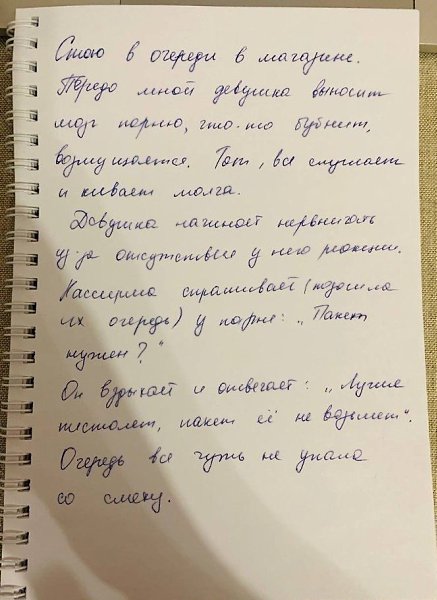 Стою в очереди в магазине.
Передо мной девушка выносит
мозг парню, что-то бубнит,
возмущается. Тот, все слушает
и кивает молча.
Девушка начинает нервничать
из-за отсутствия у него реакции.
Кассирша спрашивает (подошла
их очередь) у парня: „Пакет
нужен?"
Он вздыхает и отвечает: „Лучше
пистолет, пакет её не возьмет".
Очередь вся чуть не упала
со смеху.